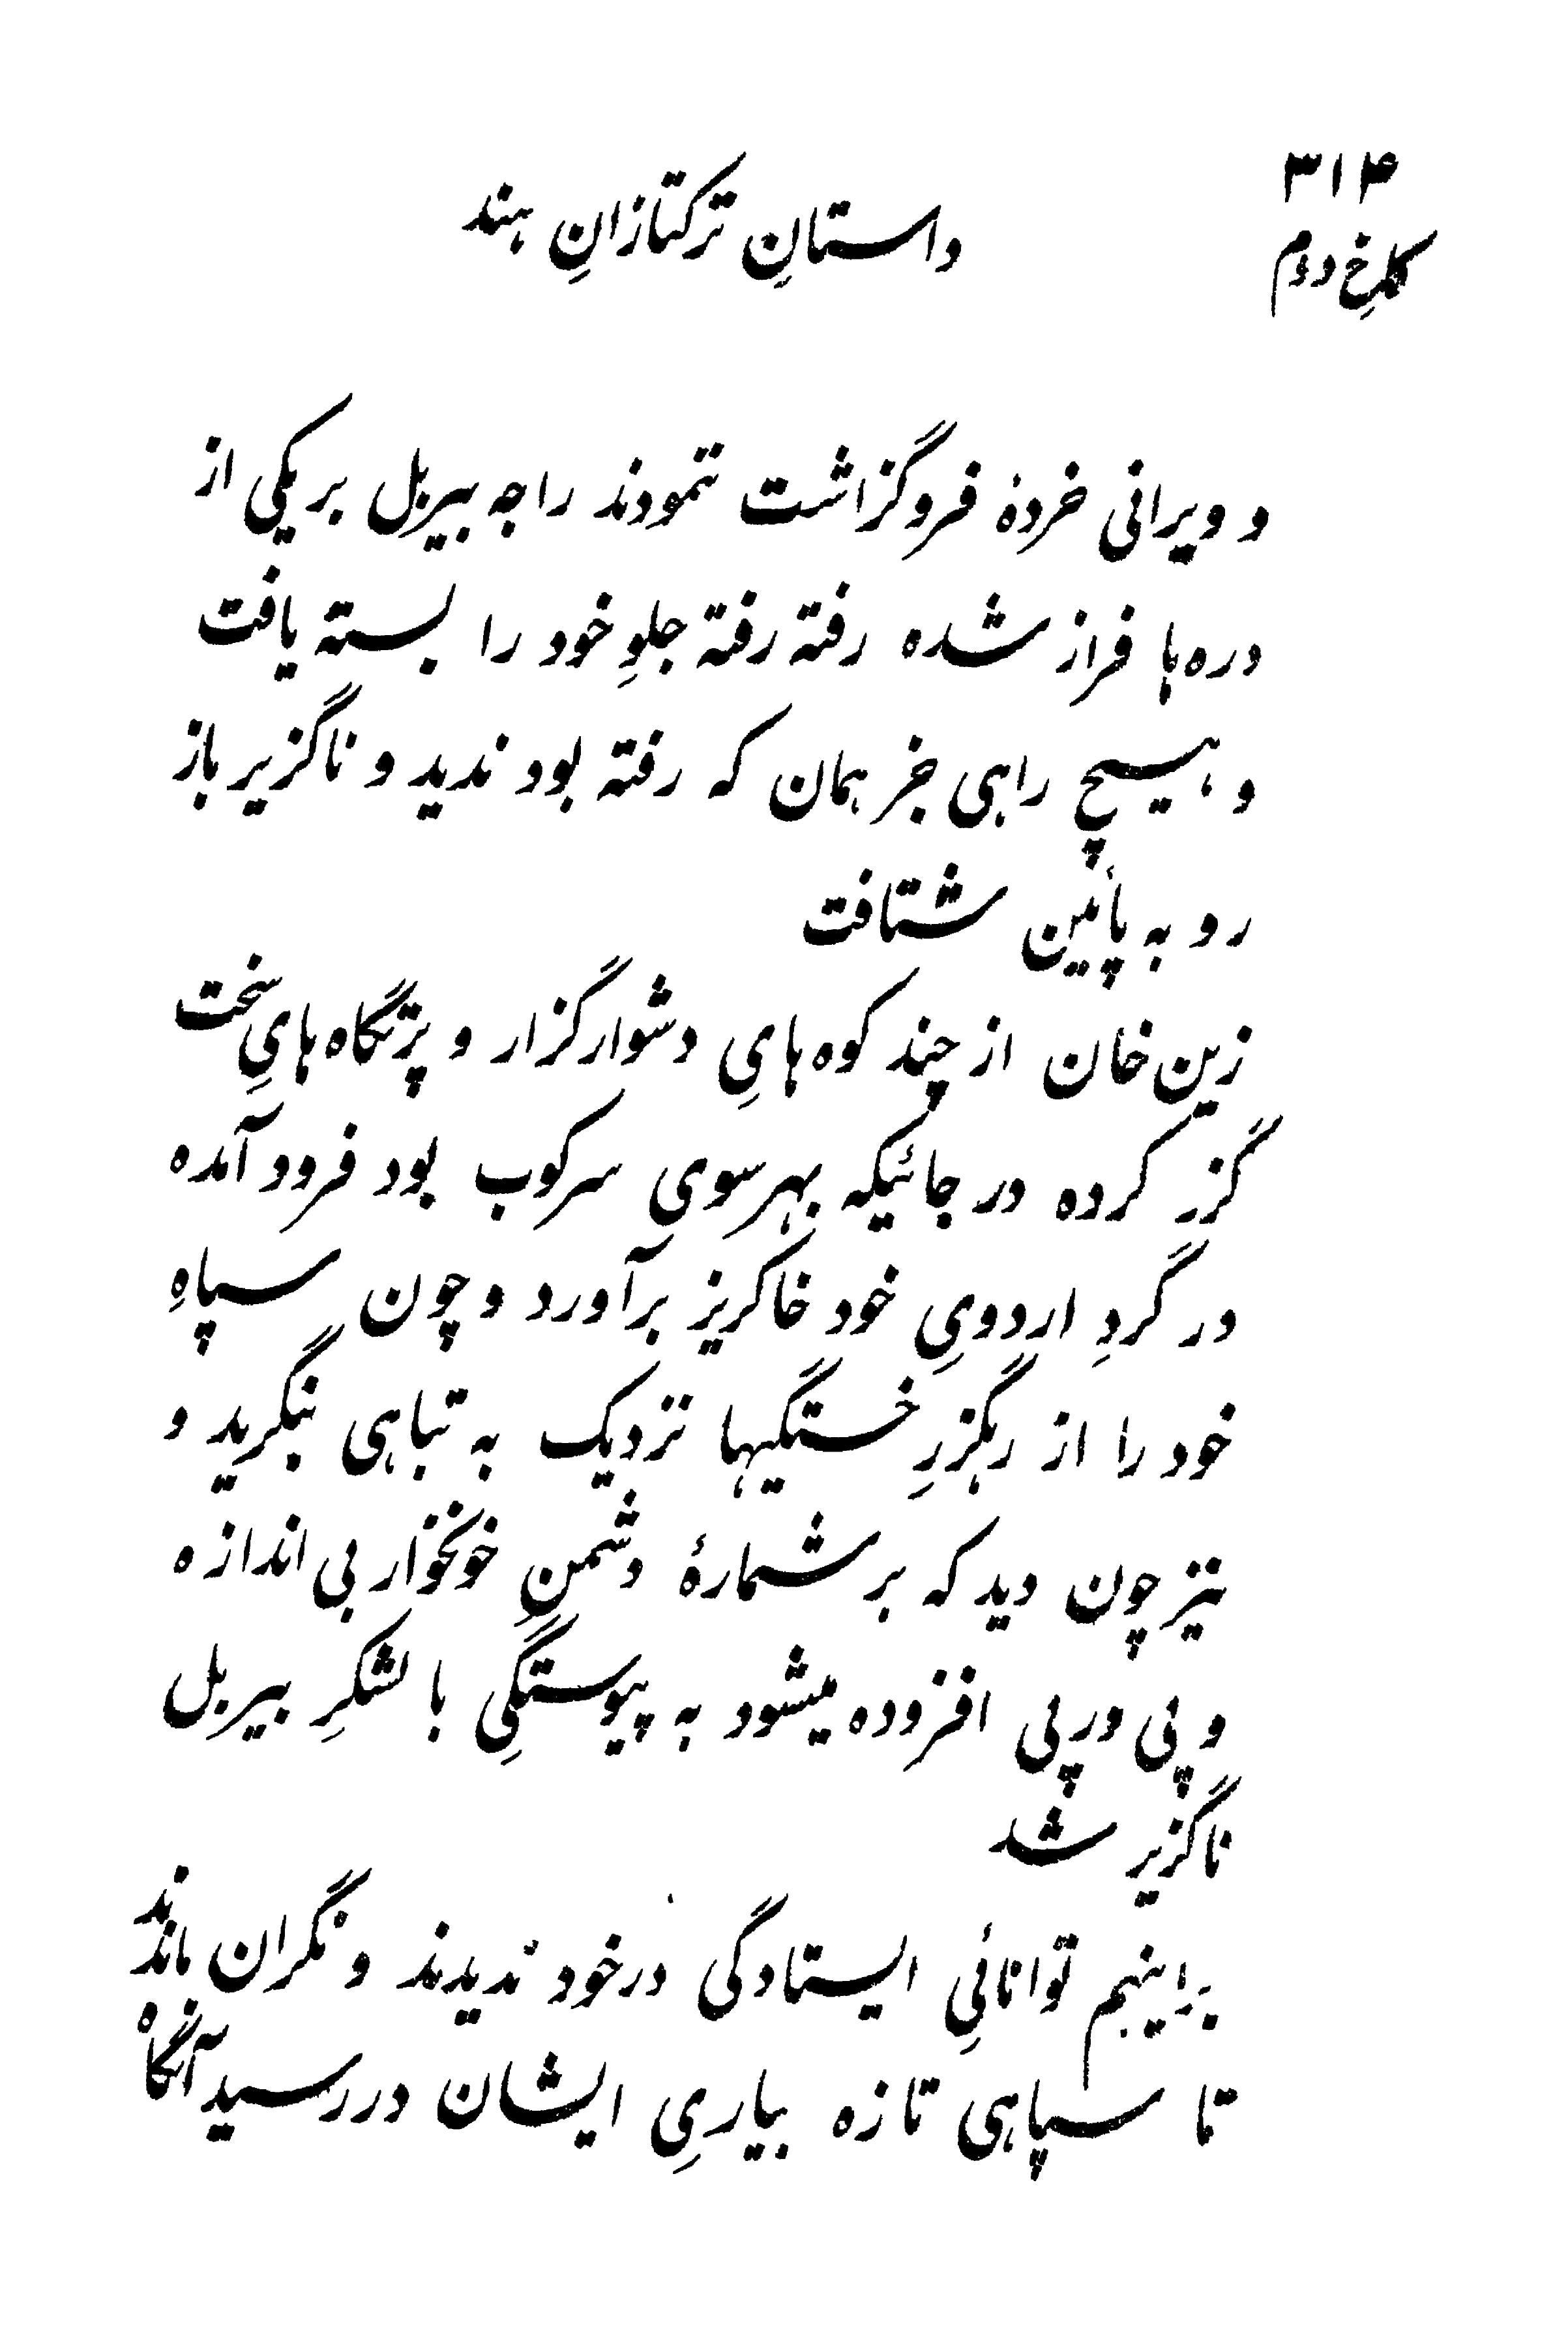 ۳۱۴
داستانِ ترکتازانِ هند
کاخِ دوم
و ویرانی خردهٔ فروگزاشت ننمودند راجه بیربل بر یکی از
دره ها فراز شده رفته رفته جلوِ خود را بسته یافت
و هیچ راهی جز همان که رفته بود ندید و ناگزیر باز
رو به پائین شتافت
زین خان از چند کوه هایِ دشوارگزار و پرتگاه هایِ سخت
گزر کرده در جائیکه بهر سوی سرکوب بود فرود آمده
در گردِ اردویِ خود خاکریز برآورد و چون سپاهِ
خود را از رهگزرِ خستگیها نزدیک به تباهی نگرید و
نیز چون دید که بر شمارهٔ دشمنِ خونخوار بی اندازه
و پی در پی افزوده میشود به پیوستگیِ با لشکرِ بیربل
ناگزیر شد
براینهم توانائیِ ایستادگی در خود ندیدند و نگران ماندند
تا سپاهی تازه بیاریِ ایشان در رسید آنگاه